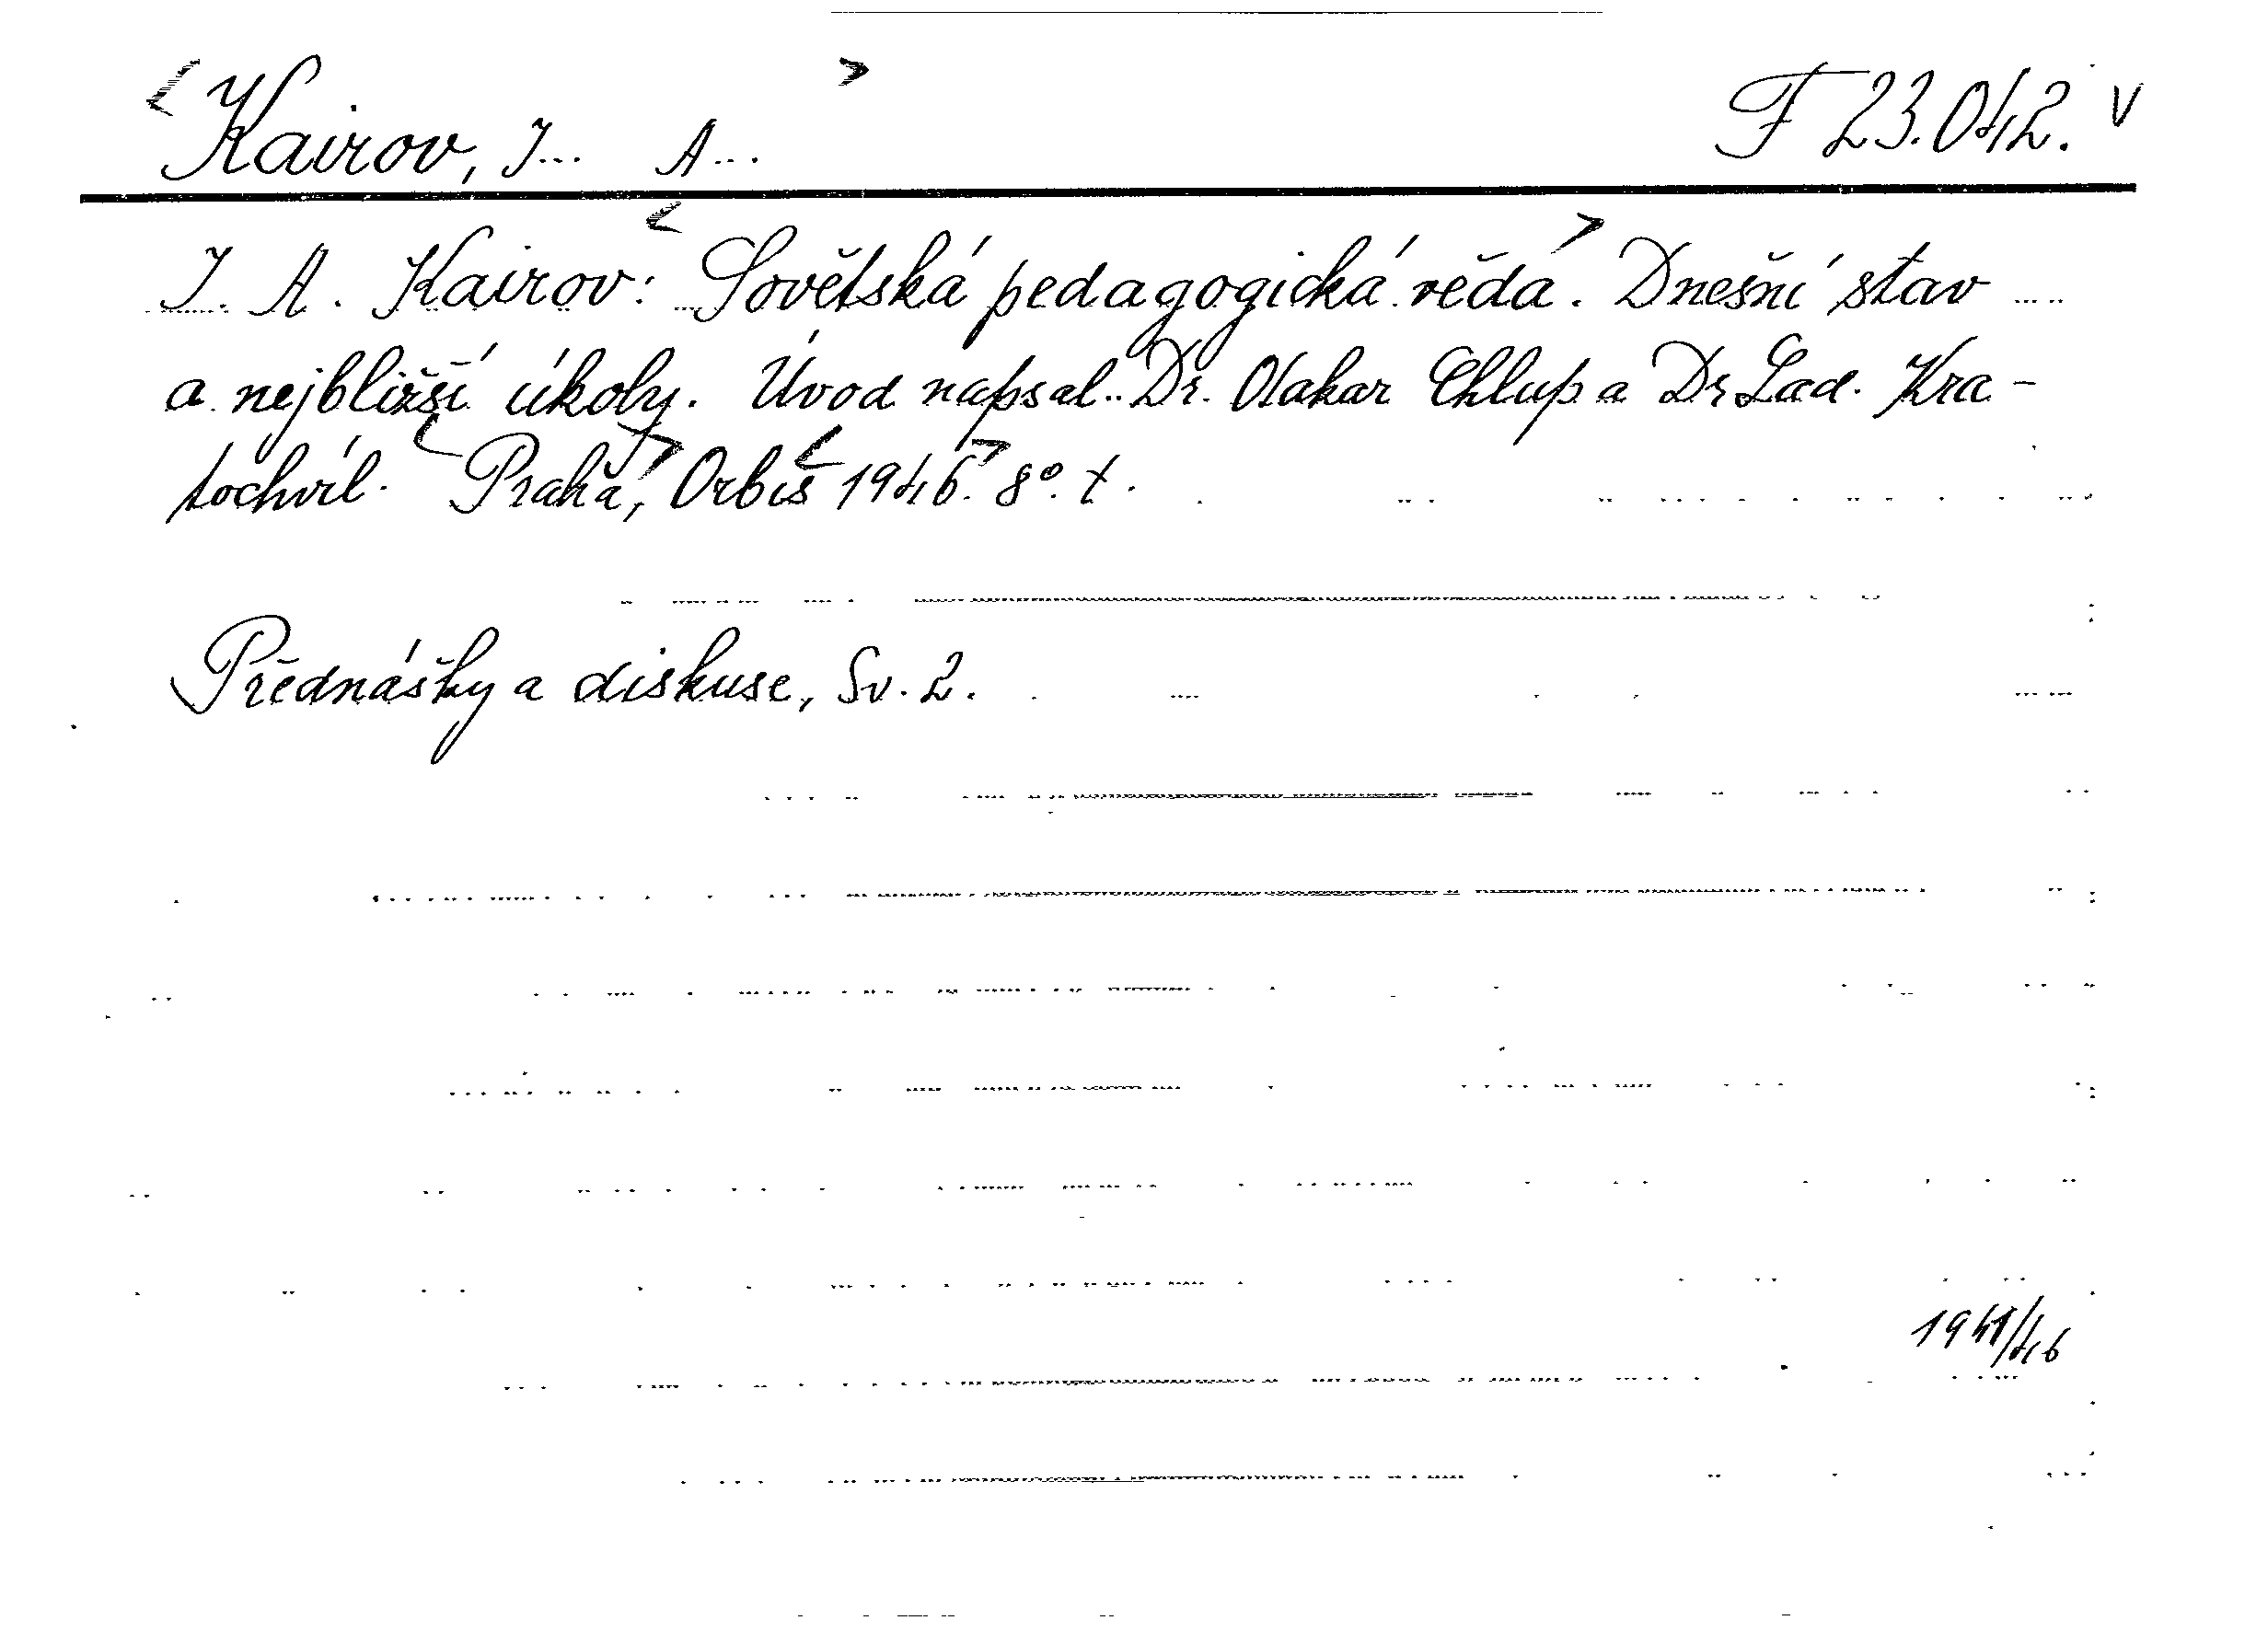 Kairov, I... A... F 23.042. v
I. A. Kairov: Sovětská pedagogická věda. Dnešní stav
a nejbližší úkoly. Úvod napsal Dr. Otakar Chlup a Dr Lad. Kra-
tochvíl. Praha, Orbis 1946. 8°. t.
Přednášky a diskuse, Sv. 2.
1941/46